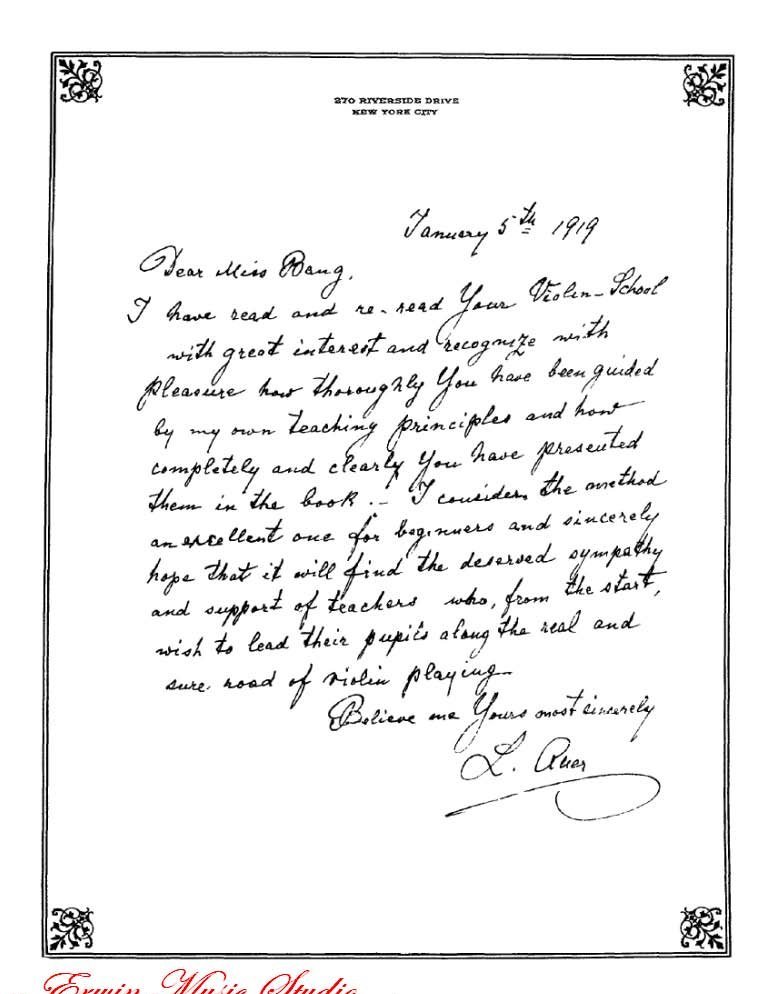 270 RIVERSIDE DRIVE
NEW YORK CITY
January 5th 1919
Dear Miss Bang,
I have read and re-read Your Violin-School
with great interest and recognize with
pleasure how thoroughly You have been guided
by my own teaching principles and how
completely and clearly You have presented
them in the book.- I consider the method
an excellent one for beginners and sincerely
hope that it will find the deserved sympathy
and support of teachers who, from the start,
wish to lead their pupils along the real and
sure road of violin playing.
Believe me Yours most sincerely
L. Auer
Erwin Music Studio